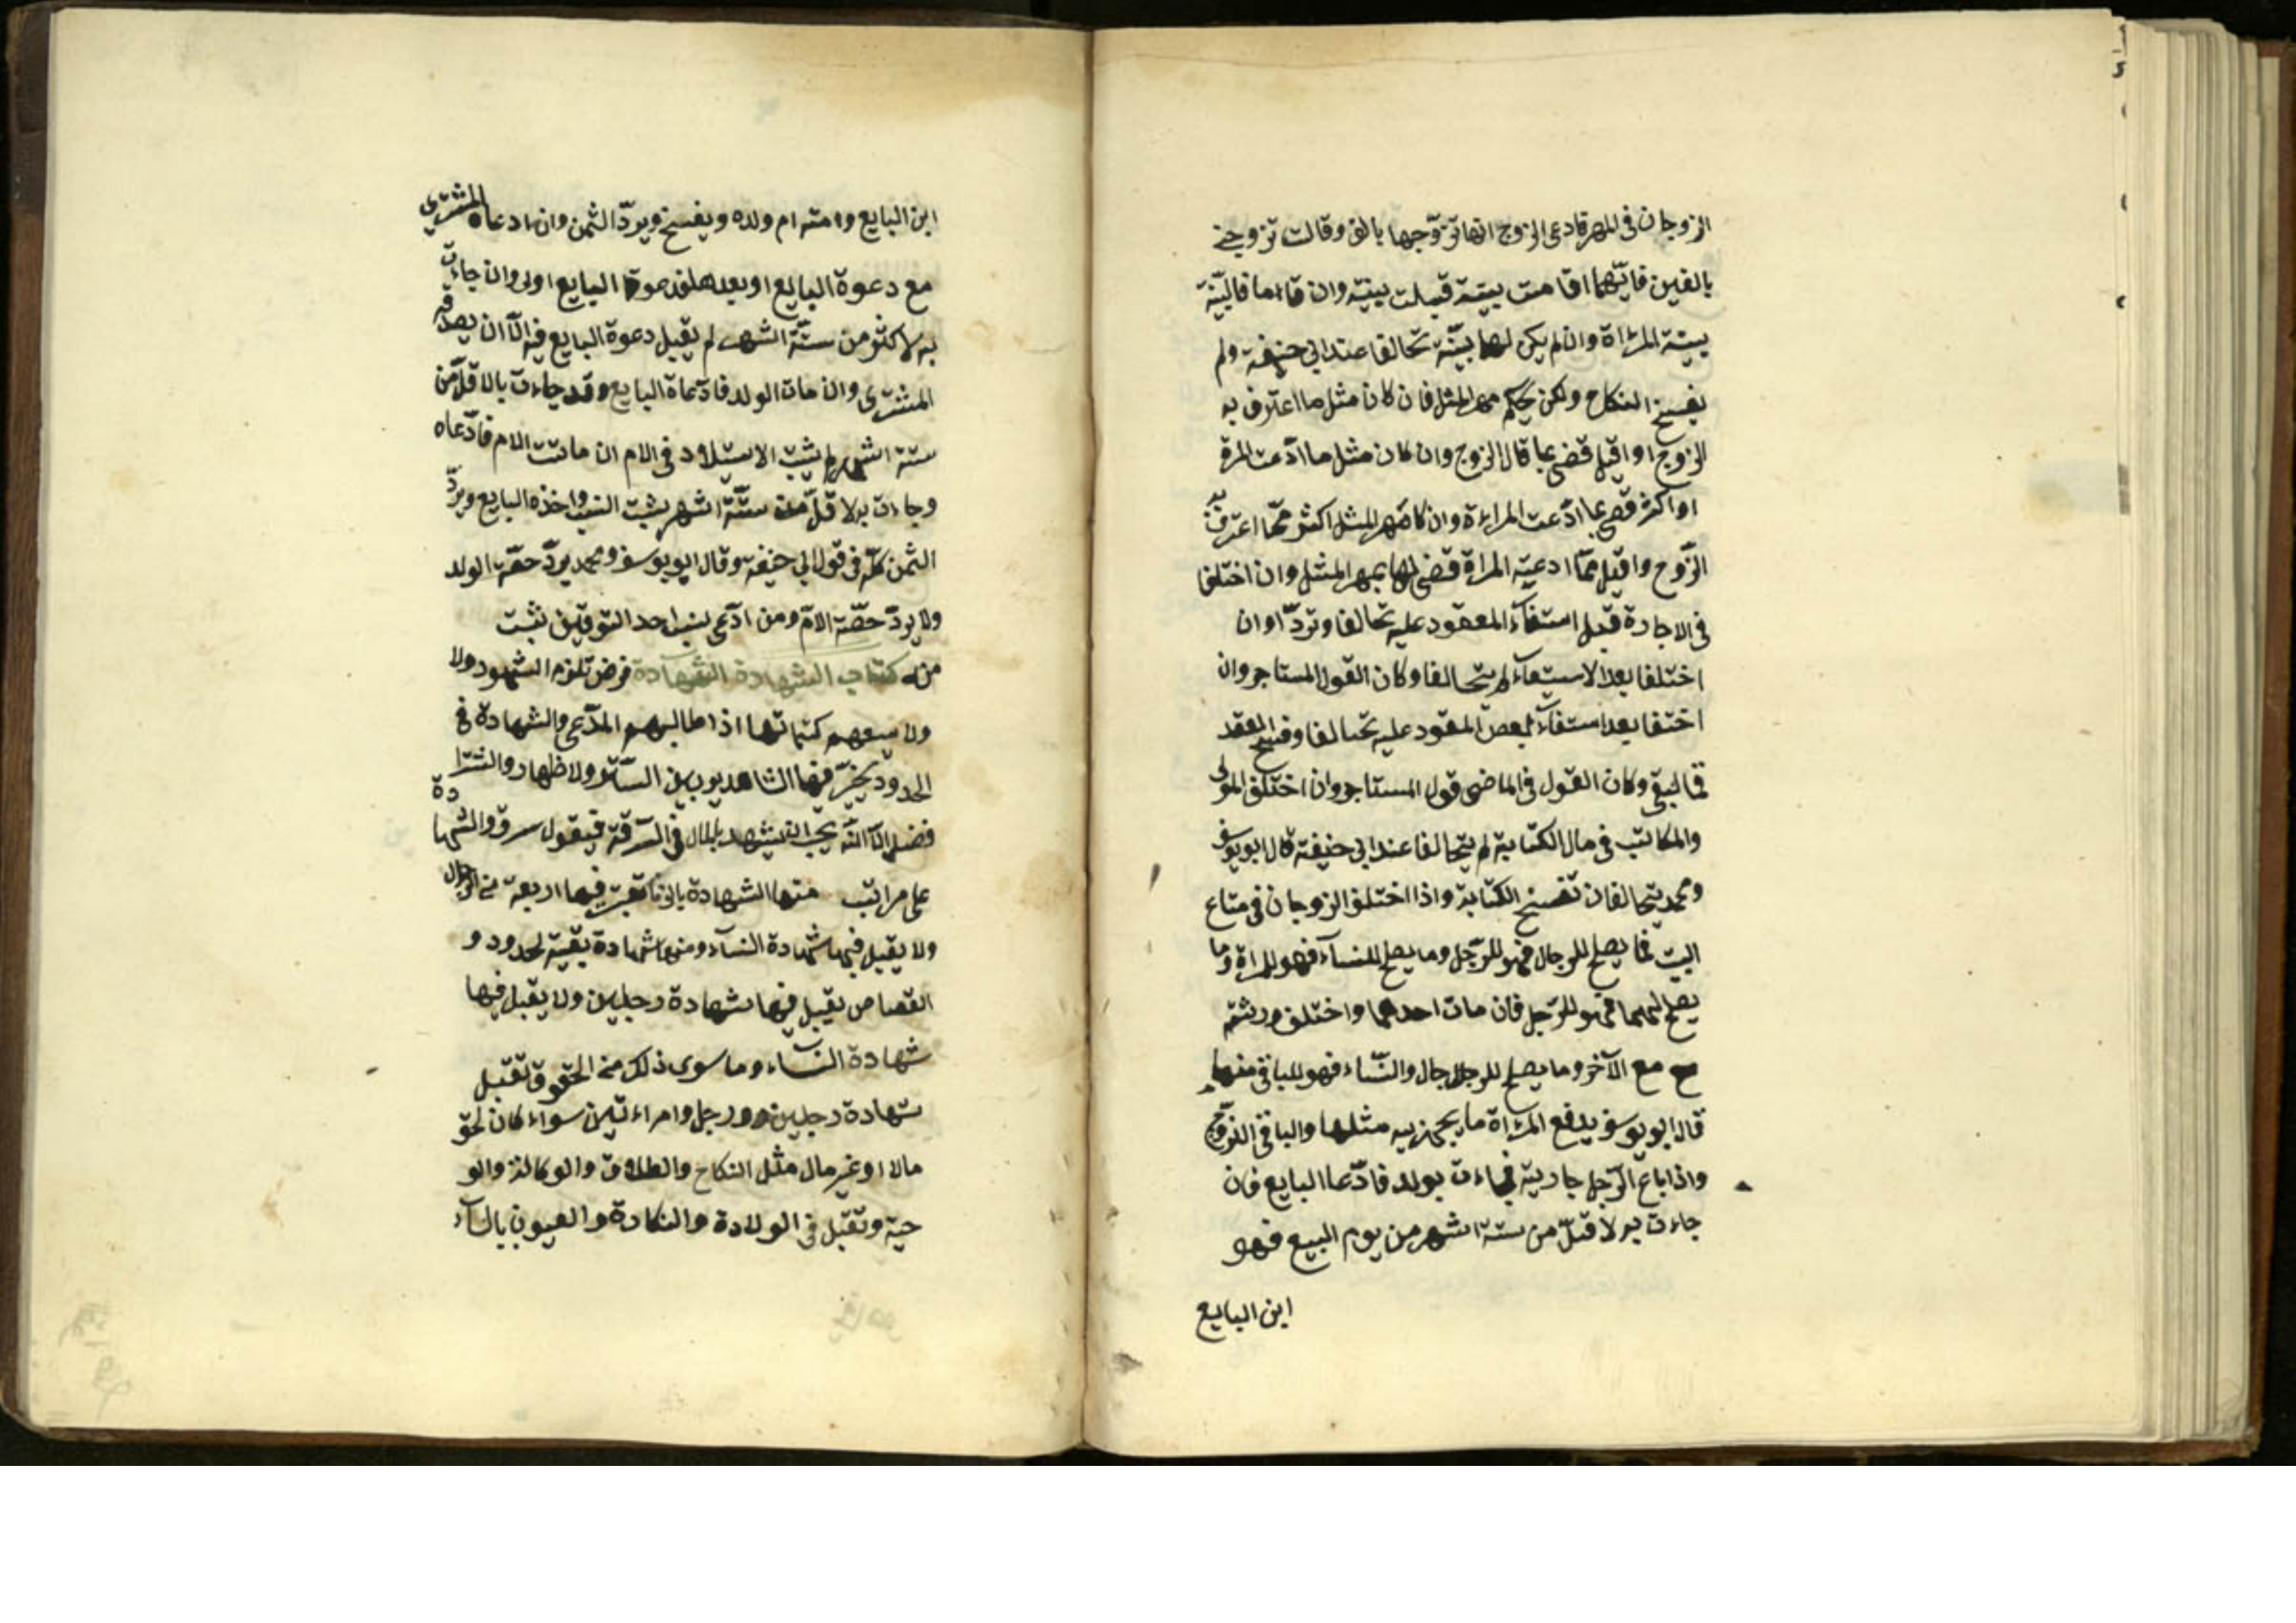 الزوجان فى المهر فادعى الزوج انها تزوّجها بالف وقالت تزوجنى
بالفين فايّهما اقامت بينة قبلت بينته وان قاما فالبيّنة
بينة المراة وان لم يكن لهما بيّنة تحالفا عند ابى حنيفة ولم
يفسخ النكاح ولكن يحكم مهر المثل فان كان مثل ما اعترف به
الزوج او اقل قضى بما قال الزوج وان كان مثل ما ادّعت المرة
او اكثر قضى بما ادّعت المراءة وان كان مهر المثل اكثر ممّا اعترف به
الزّوج واقل ممّا ادعيته المراة قضى لها بمهر المثل وان اختلفا
فى الاجارة قبل استفآء المعقود عليه تحالفا وتردّا وان
اختلفا بعد الاستيفآء لم يتحالفا وكان القول المستاجر وان
اختفا بعد استفآء بعض المعقود عليه تحالفا وفسخ العقد
فما لبقى وكان القول فى الماضى قول المستاجر وان اختلف المولى
والمكاتب فى مال الكتابة لم يتحالفا عند ابى حنيفة قال ابو يوسف
ومحمد يتحالفان تفسخ الكتابة واذا اختلف الزوجان فى متاع
البيت فما يصلح للرجال فهو للرّجل وما يصلح للنسآء فهو للمراة وما
يصلح لهما فهو للرّجل فان مات احدهما واختلف ورثته
مع الآخر وما يصلح للرجال والنّساء فهو للباقى منهما
قال ابو يوسف يدفع المراة ما يجهز به مثلها والباقى الزوج
واذا باع الرّجل جارية فجاءت بولد فادّعا البايع فان
جاءت به لاقلّ من ستة اشهر من يوم البيع فهو
ابن البايع
ابن البايع وامته ام ولده ويفسخ ويردّ الثمن وان ادعاه المشترى
مع دعوة البايع او بعدها فدعوة البايع اولى وان جاءت
به لاكثر من ستّة اشهر لم يقبل دعوة البايع فيه الّا ان يصدقه
المشترى وان مات الولد فادّعاة البايع وقد جاءت بالاقلّ من
ستة اشهر لم يثبت الاستيلاد فى الام ان ماتت الام فادّعاه
وجاءت به لاقلّ من ستّة اشهر يثبت النسب واخذه البايع ويردّ
الثمن كلّه فى قول ابى حنيفة وقال ابو يوسف ومحمد يردّ حصّة الولد
ولا يردّ حصّة الامّ ومن ادّعى نسب احد التوءمين ثبت
منه كتاب الشهادة الشهادة فرض تلزم الشهود ولا
ولا يسعهم كتمانها اذا طالبهم المدّعى والشهادة فى
الحدود يخيّر فيها الشاهد بين السّتر ولاظهار والستر
فضل الّا انّه يجب ان يشهد بالمال فى السّرقة فيقول سرق والشهادة
على مراتب منها الشهادة بالزنا تعتبر فيها اربعة من الرجال
ولا يقبل فيها شهادة النسآء ومنها شهادة بقية لحدود و
القصاص يقبل فيها شهادة رجلين ولا يقبل فيها
شهادة النساء وما سوى ذلك من الحقوق تقبل
شهادة رجلين او رجل وامراءتين سواء كان لحق
مالا او غير مال مثل النكاح والطلاق والوكالة والو
حية وتقبل فى الولادة والبكارة والعيوب بالنسآء